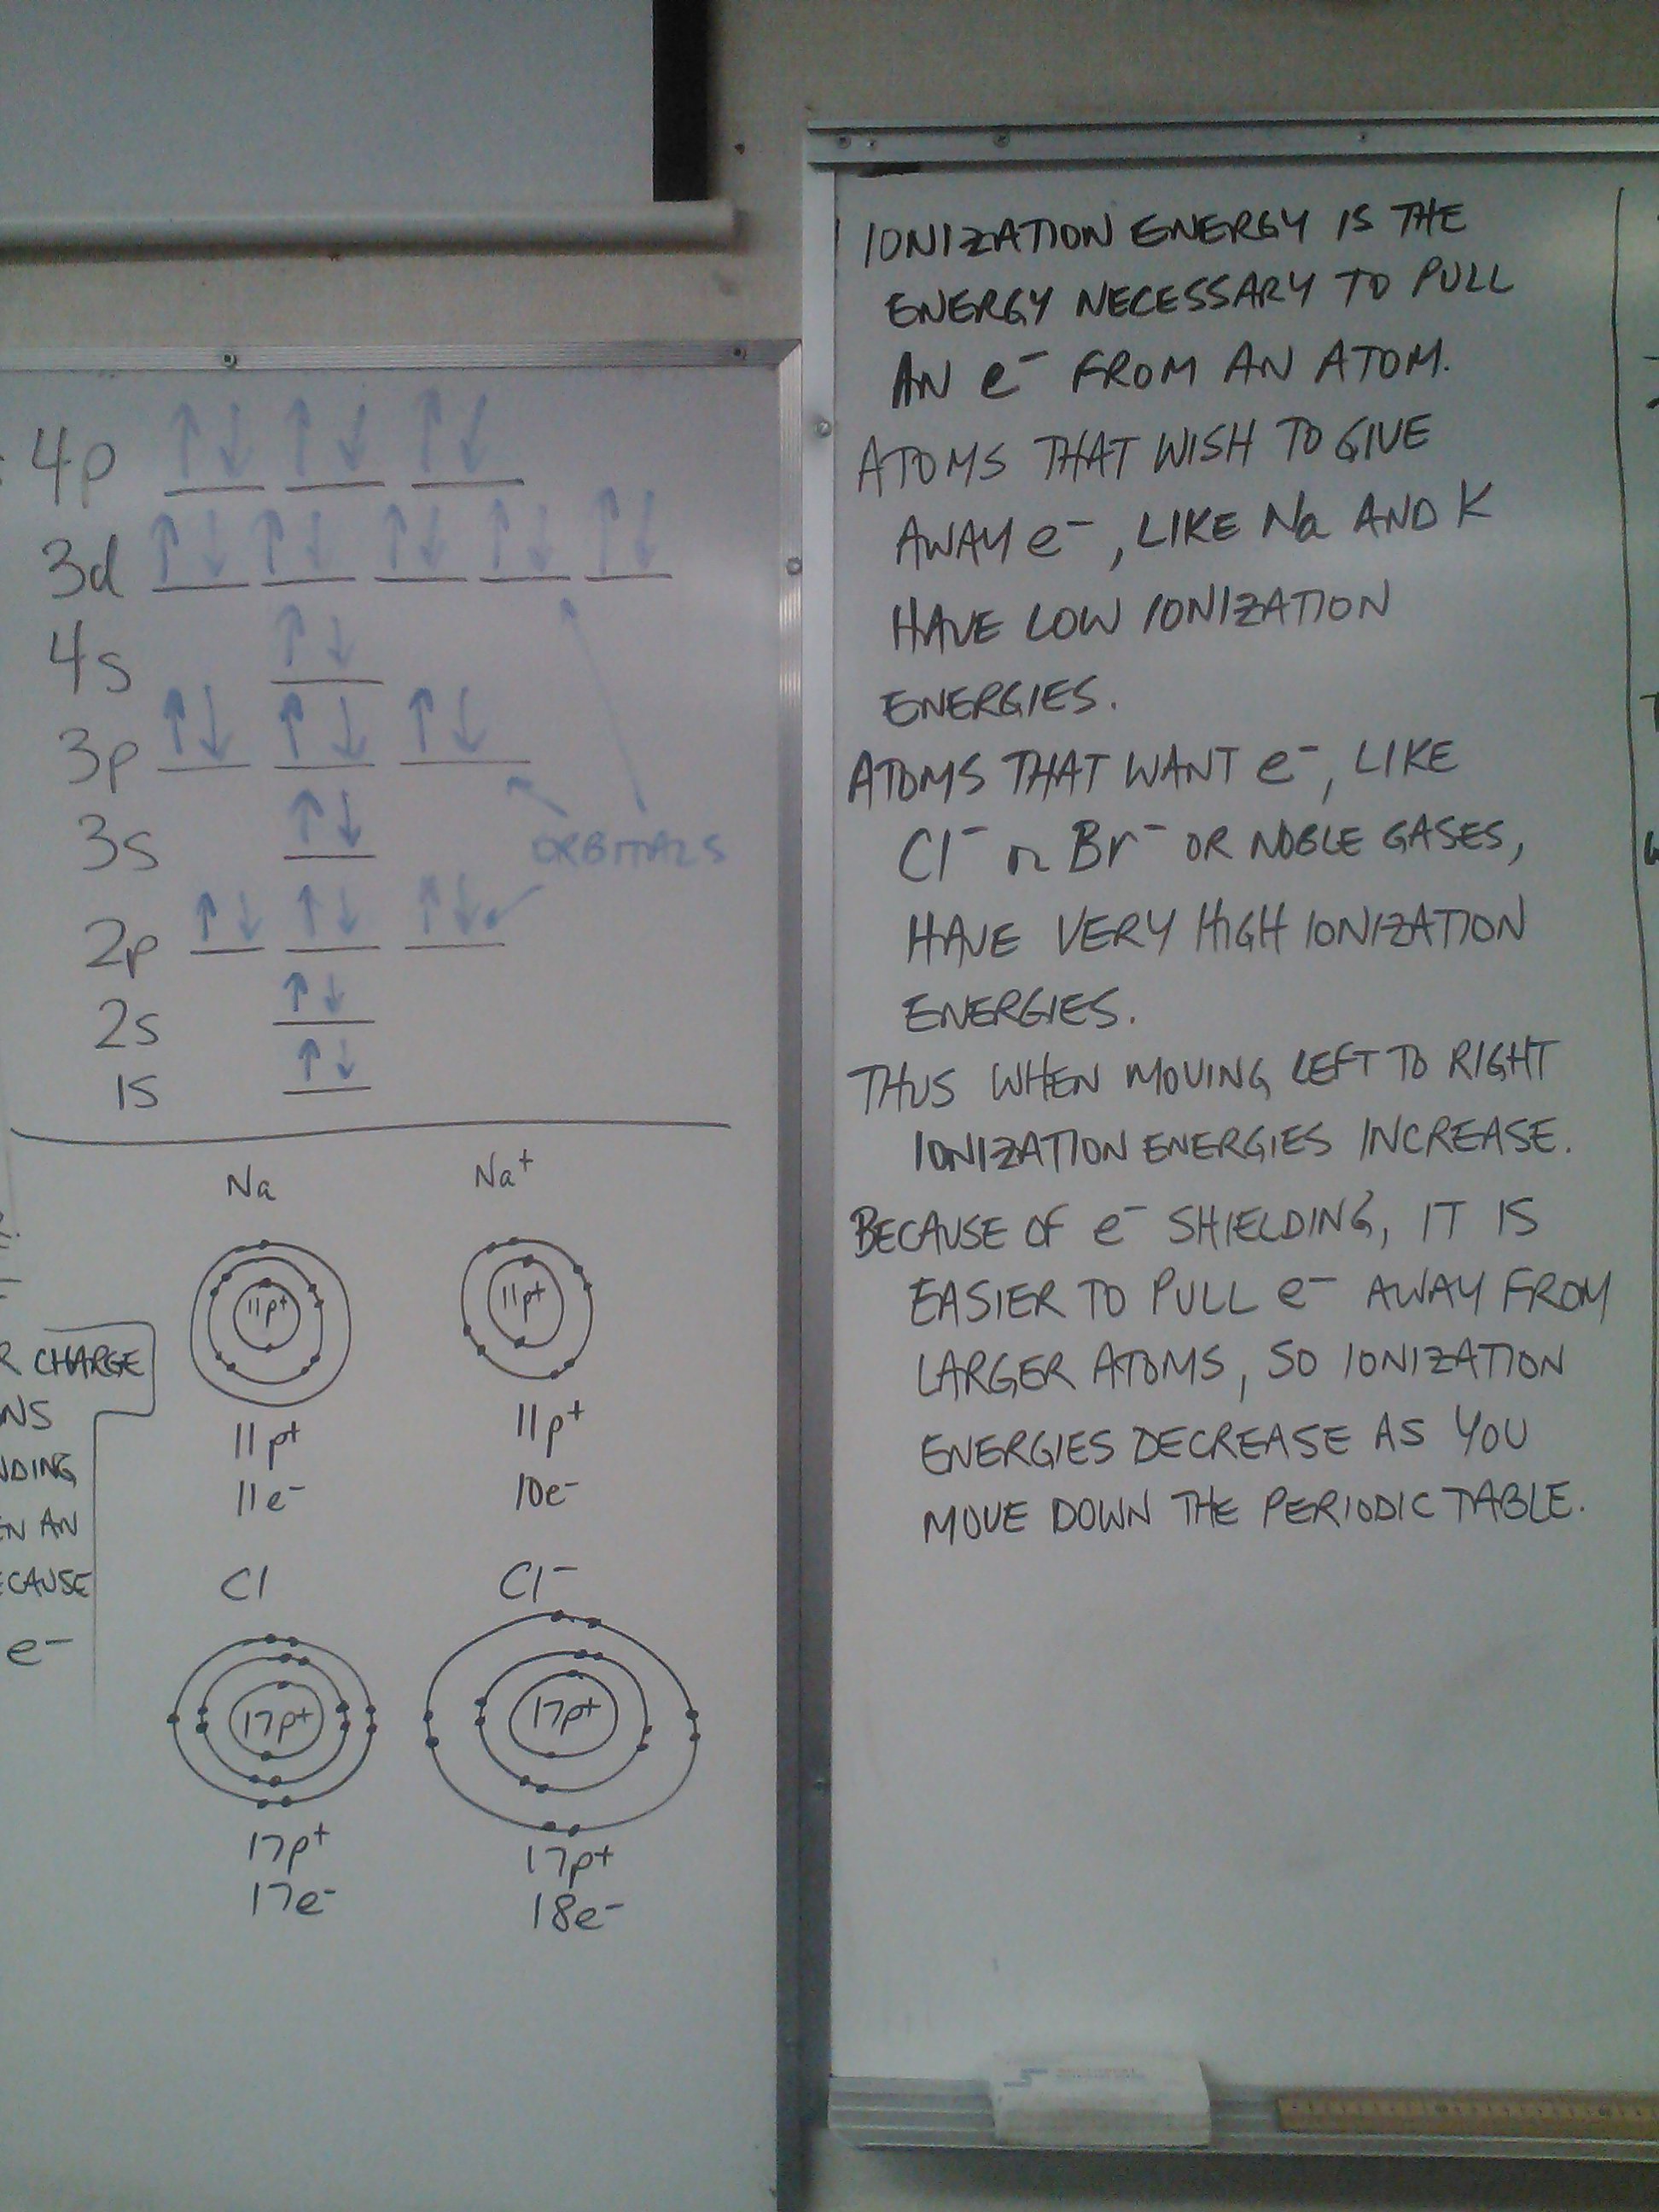 4p ↑↓ ↑↓ ↑↓
3d ↑↓ ↑↓ ↑↓ ↑↓ ↑↓
4s ↑↓
3p ↑↓ ↑↓ ↑↓
3s ↑↓
ORBITALS
2p ↑↓ ↑↓ ↑↓
2s ↑↓
1s ↑↓
Na Na⁺
11p⁺ 11p⁺
11p⁺ 11p⁺
11e⁻ 10e⁻
Cl Cl⁻
17p⁺ 17p⁺
17p⁺ 17p⁺
17e⁻ 18e⁻
CHARGE
AN
e⁻
IONIZATION ENERGY IS THE
ENERGY NECESSARY TO PULL
AN e⁻ FROM AN ATOM.
ATOMS THAT WISH TO GIVE
AWAY e⁻, LIKE Na AND K
HAVE LOW IONIZATION
ENERGIES.
ATOMS THAT WANT e⁻, LIKE
Cl⁻ or Br⁻ OR NOBLE GASES,
HAVE VERY HIGH IONIZATION
ENERGIES.
THUS WHEN MOVING LEFT TO RIGHT
IONIZATION ENERGIES INCREASE.
BECAUSE OF e⁻ SHIELDING, IT IS
EASIER TO PULL e⁻ AWAY FROM
LARGER ATOMS, SO IONIZATION
ENERGIES DECREASE AS YOU
MOVE DOWN THE PERIODIC TABLE.